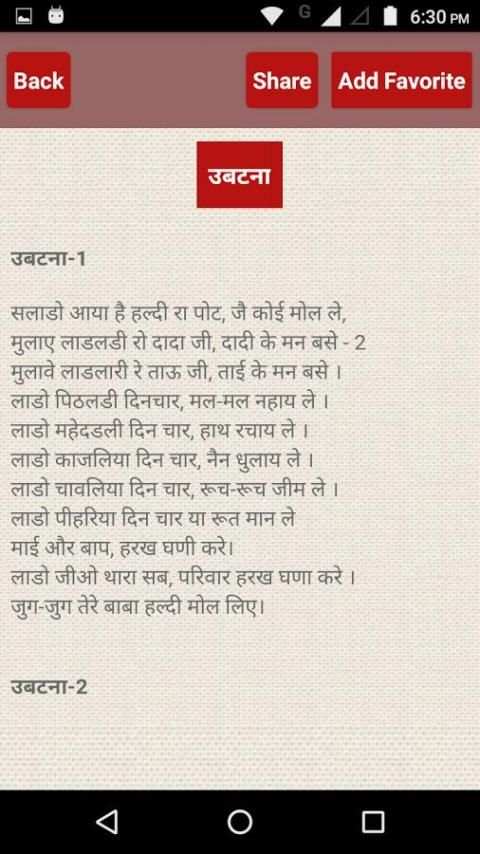 G 6:30 PM
Back Share Add Favorite
उबटना
उबटना-1
सलाडो आया है हल्दी रा पोट, जै कोई मोल ले,
मुलाए लाडलडी रो दादा जी, दादी के मन बसे - 2
मुलावे लाडलारी रे ताऊ जी, ताई के मन बसे ।
लाडो पिठलडी दिनचार, मल-मल नहाय ले ।
लाडो महेदडली दिन चार, हाथ रचाय ले ।
लाडो काजलिया दिन चार, नैन धुलाय ले ।
लाडो चावलिया दिन चार, रूच-रूच जीम ले ।
लाडो पीहरिया दिन चार या रूत मान ले
माई और बाप, हरख घणी करे।
लाडो जीओ थारा सब, परिवार हरख घणा करे ।
जुग-जुग तेरे बाबा हल्दी मोल लिए।
उबटना-2